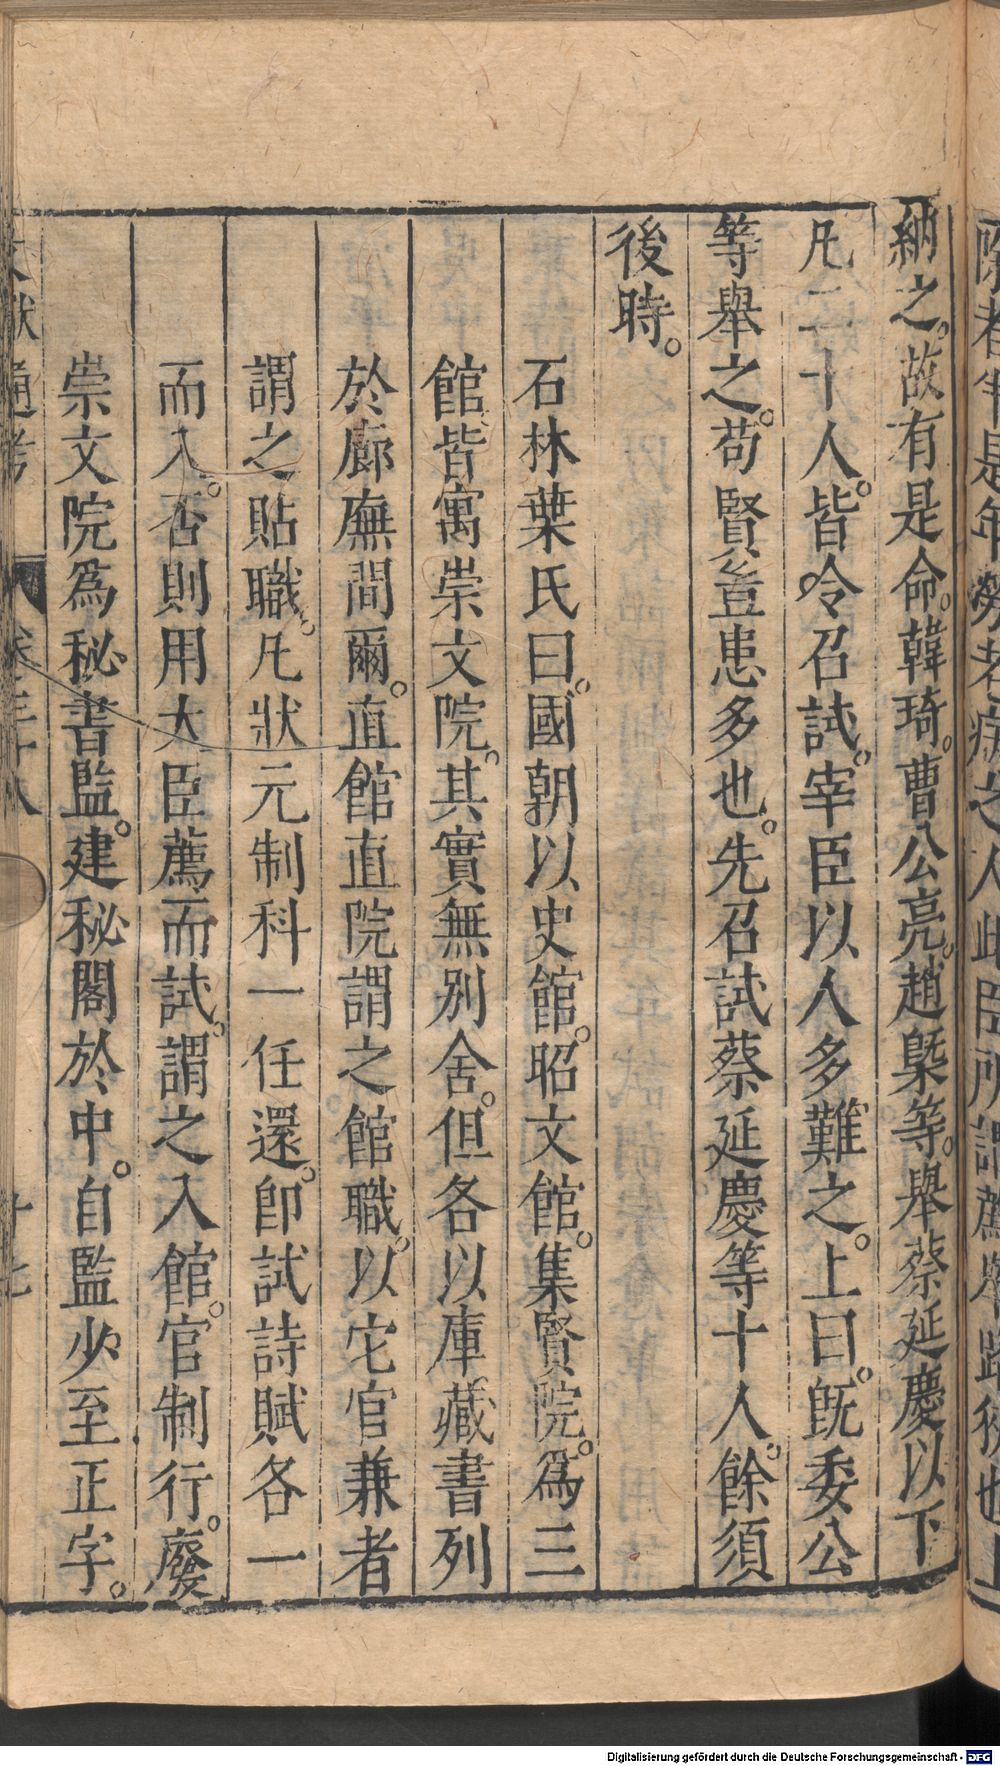 納之。故有是命。韓琦。曹公亮。趙槩等。舉蔡延慶以下
凡二十人。皆令召試。宰臣以人多難之。上曰。旣委公
等舉之。苟賢豈患多也。先召試蔡延慶等十人。餘須
後時。
石林葉氏曰。國朝以史館。昭文館。集賢院。爲三
館。皆寓崇文院。其實無別舍。但各以庫藏書列
於廊廡間爾。直館直院謂之館職。以它官兼者
謂之貼職。凡狀元制科一任還。卽試詩賦各一
而入。否則用大臣薦而試。謂之入館。官制行。廢
崇文院爲秘書監。建秘閣於中。自監少至正字。
文獻通考 卷三十八 十七
Digitalisierung gefördert durch die Deutsche Forschungsgemeinschaft - DFG